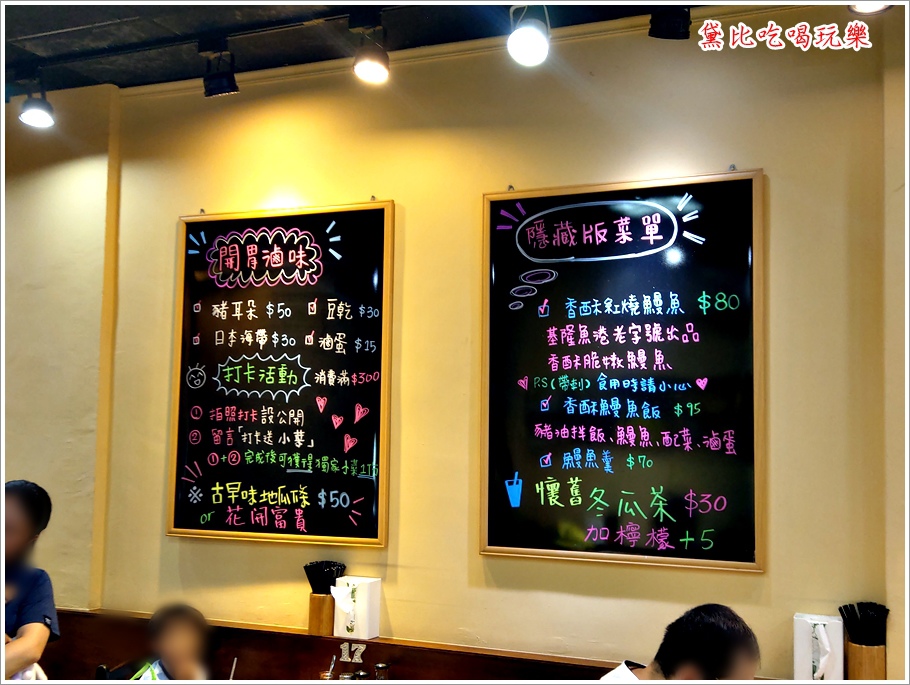 黛比吃喝玩樂
開胃滷味
豬耳朵 $50 豆乾 $30
日本海帶 $30 滷蛋 $15
打卡活動 消費滿 $300
① 拍照打卡 設公開
② 留言「打卡送小菜」
①+② 完成後可獲得獨家小菜1下5
※ 古早味地瓜條 $50
or 花開富貴
隱藏版菜單
香酥紅燒鰻魚 $80
基隆魚港老字號出品
香酥脆嫩鰻魚
P.S(帶刺)食用時請小心
香酥鰻魚飯 $95
豬油拌飯、鰻魚、配菜、滷蛋
鰻魚羹 $70
懷舊冬瓜茶 $30
加檸檬+5
17